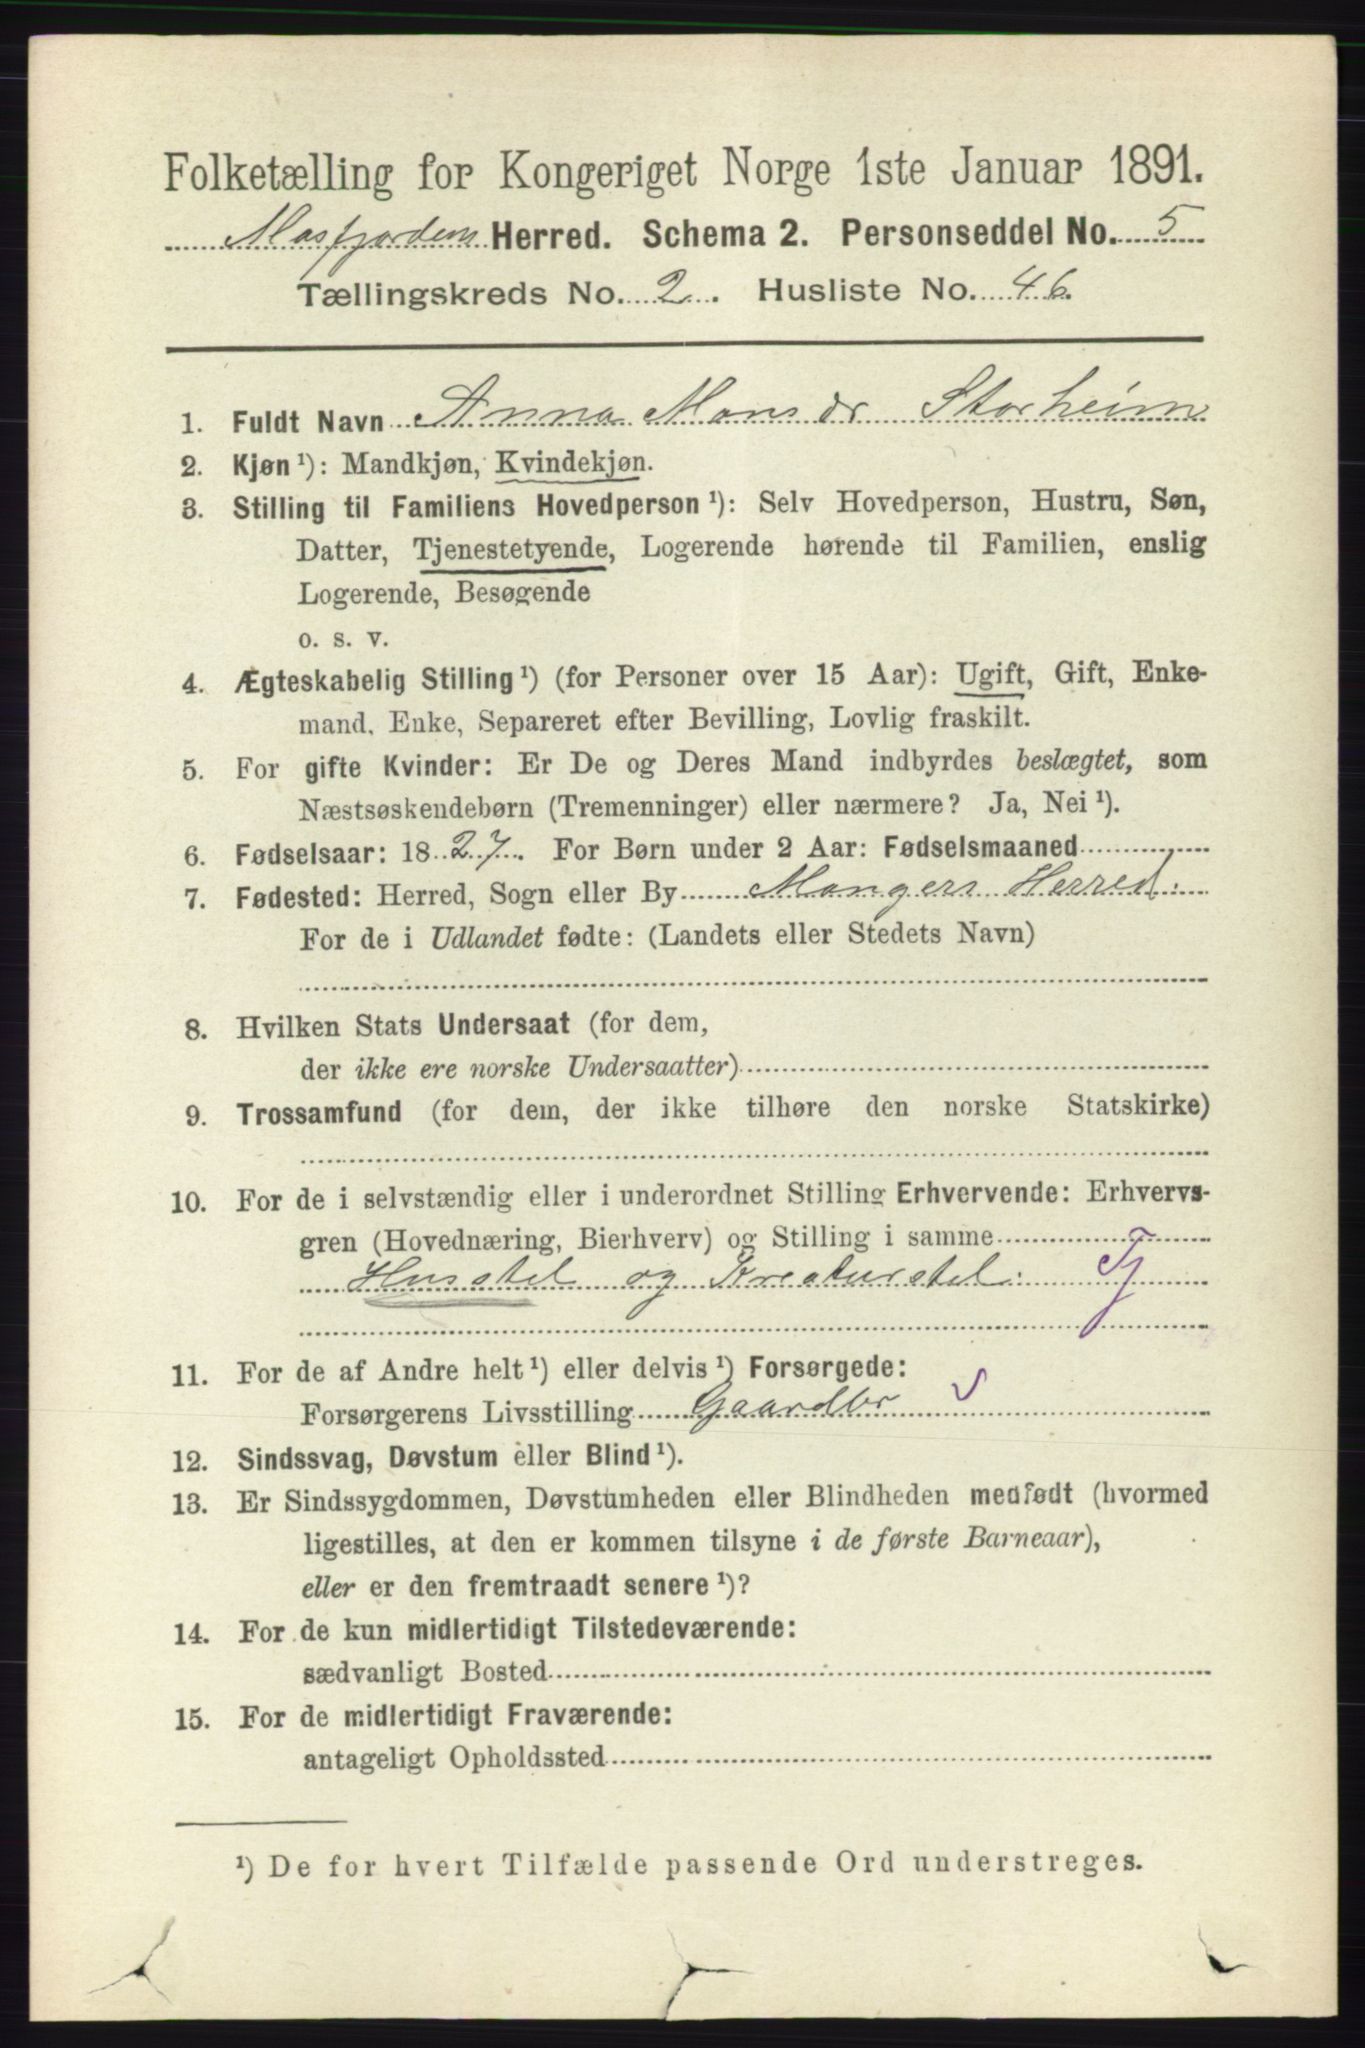 Folketælling for Kongeriget Norge 1ste Januar 1891.
Masfjorden Herred. Schema 2. Personseddel No. 5
Tællingskreds No. 2. Husliste No. 46.
1. Fuldt Navn Anna Monsdr Storheim
2. Kjøn ¹): Mandkjøn, Kvindekjøn.
3. Stilling til Familiens Hovedperson ¹): Selv Hovedperson, Hustru, Søn,
Datter, Tjenestetyende, Logerende hørende til Familien, enslig
Logerende, Besøgende
o. s. v.
4. Ægteskabelig Stilling ¹) (for Personer over 15 Aar): Ugift, Gift, Enke-
mand, Enke, Separeret efter Bevilling, Lovlig fraskilt.
5. For gifte Kvinder: Er De og Deres Mand indbyrdes beslægtet, som
Næstsøskendebørn (Tremenninger) eller nærmere? Ja, Nei ¹).
6. Fødselsaar: 1827. For Børn under 2 Aar: Fødselsmaaned
7. Fødested: Herred, Sogn eller By Mangers Herred.
For de i Udlandet fødte: (Landets eller Stedets Navn)
8. Hvilken Stats Undersaat (for dem,
der ikke ere norske Undersaatter)
9. Trossamfund (for dem, der ikke tilhøre den norske Statskirke)
10. For de i selvstændig eller i underordnet Stilling Erhvervende: Erhvervs-
gren (Hovednæring, Bierhverv) og Stilling i samme
Husstel og Kreaturstel. Tj
11. For de af Andre helt ¹) eller delvis ¹) Forsørgede:
Forsørgerens Livsstilling Gaardbr
12. Sindssvag, Døvstum eller Blind ¹).
13. Er Sindssygdommen, Døvstumheden eller Blindheden medfødt (hvormed
ligestilles, at den er kommen tilsyne i de første Barneaar),
eller er den fremtraadt senere ¹)?
14. For de kun midlertidigt Tilstedeværende:
sædvanligt Bosted
15. For de midlertidigt Fraværende:
antageligt Opholdssted
¹) De for hvert Tilfælde passende Ord understreges.